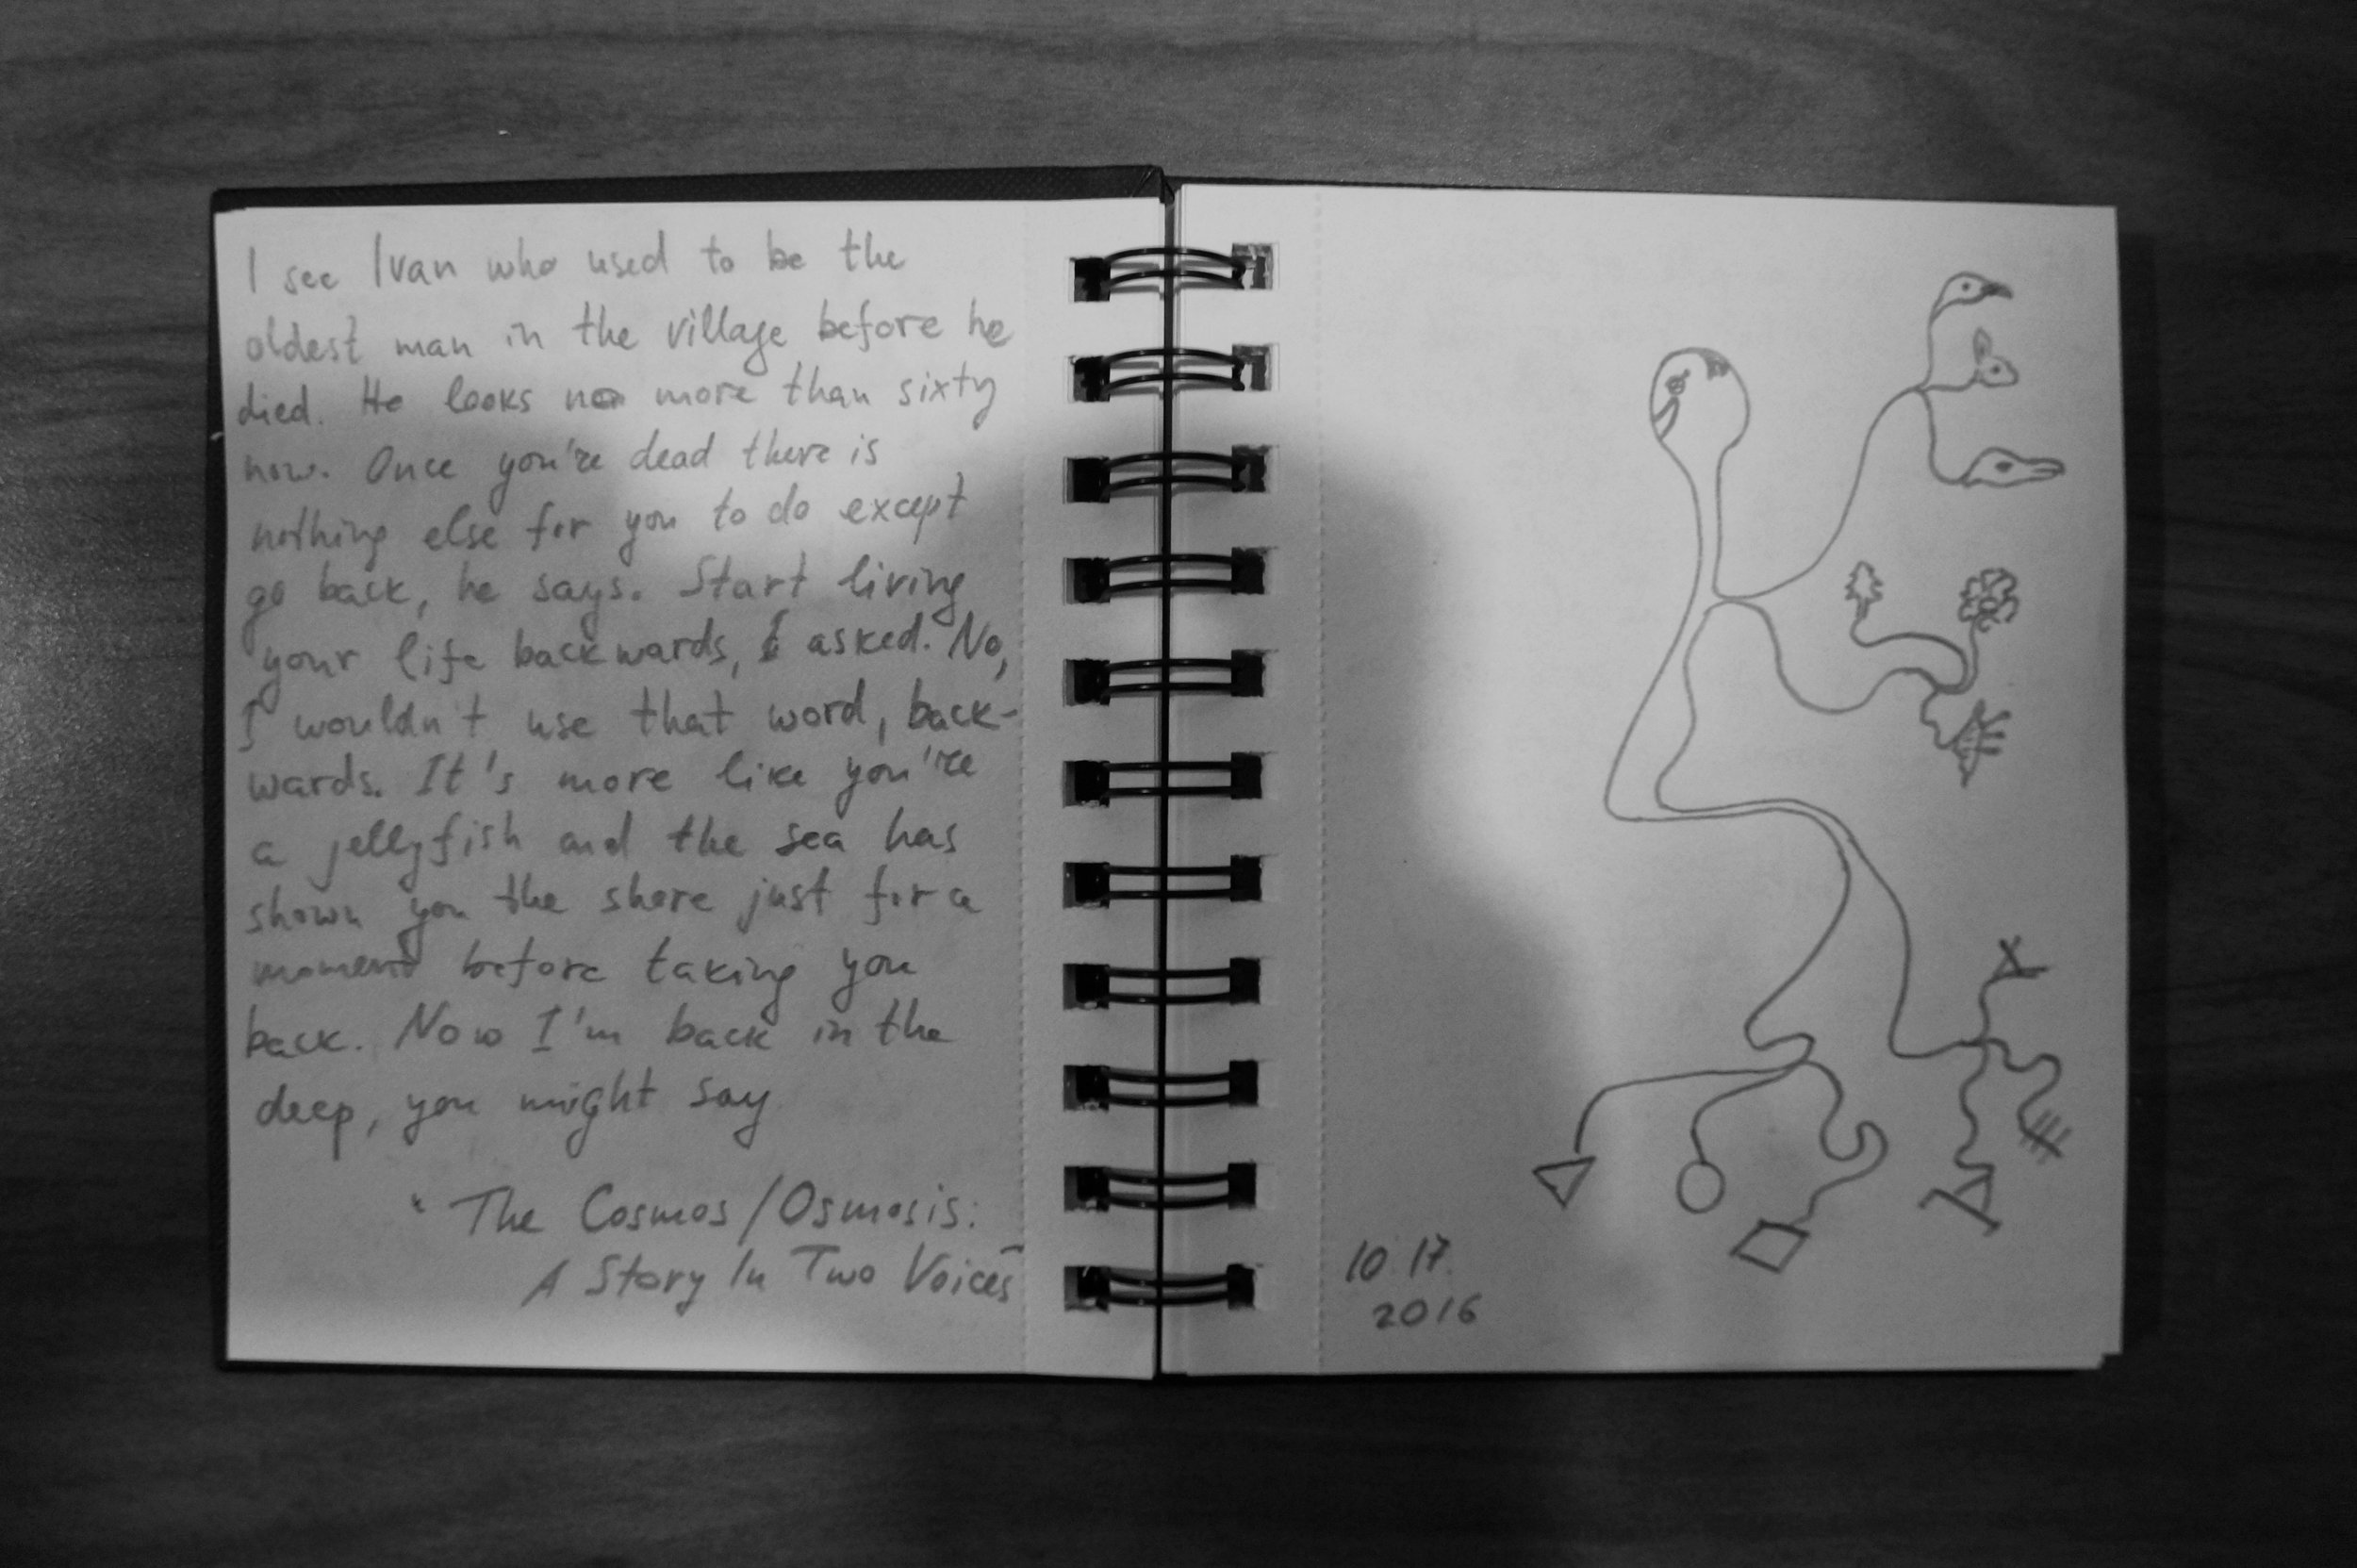 I see Ivan who used to be the
oldest man in the village before he
died. He looks no more than sixty
now. Once you're dead there is
nothing else for you to do except
go back, he says. Start living
your life backwards, I asked. No,
I wouldn't use that word, back-
wards. It's more like you're
a jellyfish and the sea has
shown you the shore just for a
moment before taking you
back. Now I'm back in the
deep, you might say
"The Cosmos/Osmosis:
A Story In Two Voices"
10.17.
2016